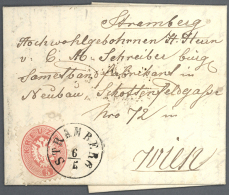 Stremberg
Hochwohlgebohrnen H. Herrn
v. C. M. Schreiber bürg
Samestband Fabrikant
Neubau Schottenfeldgasse
Nro 72 in
Wien
STRAMBERG
6